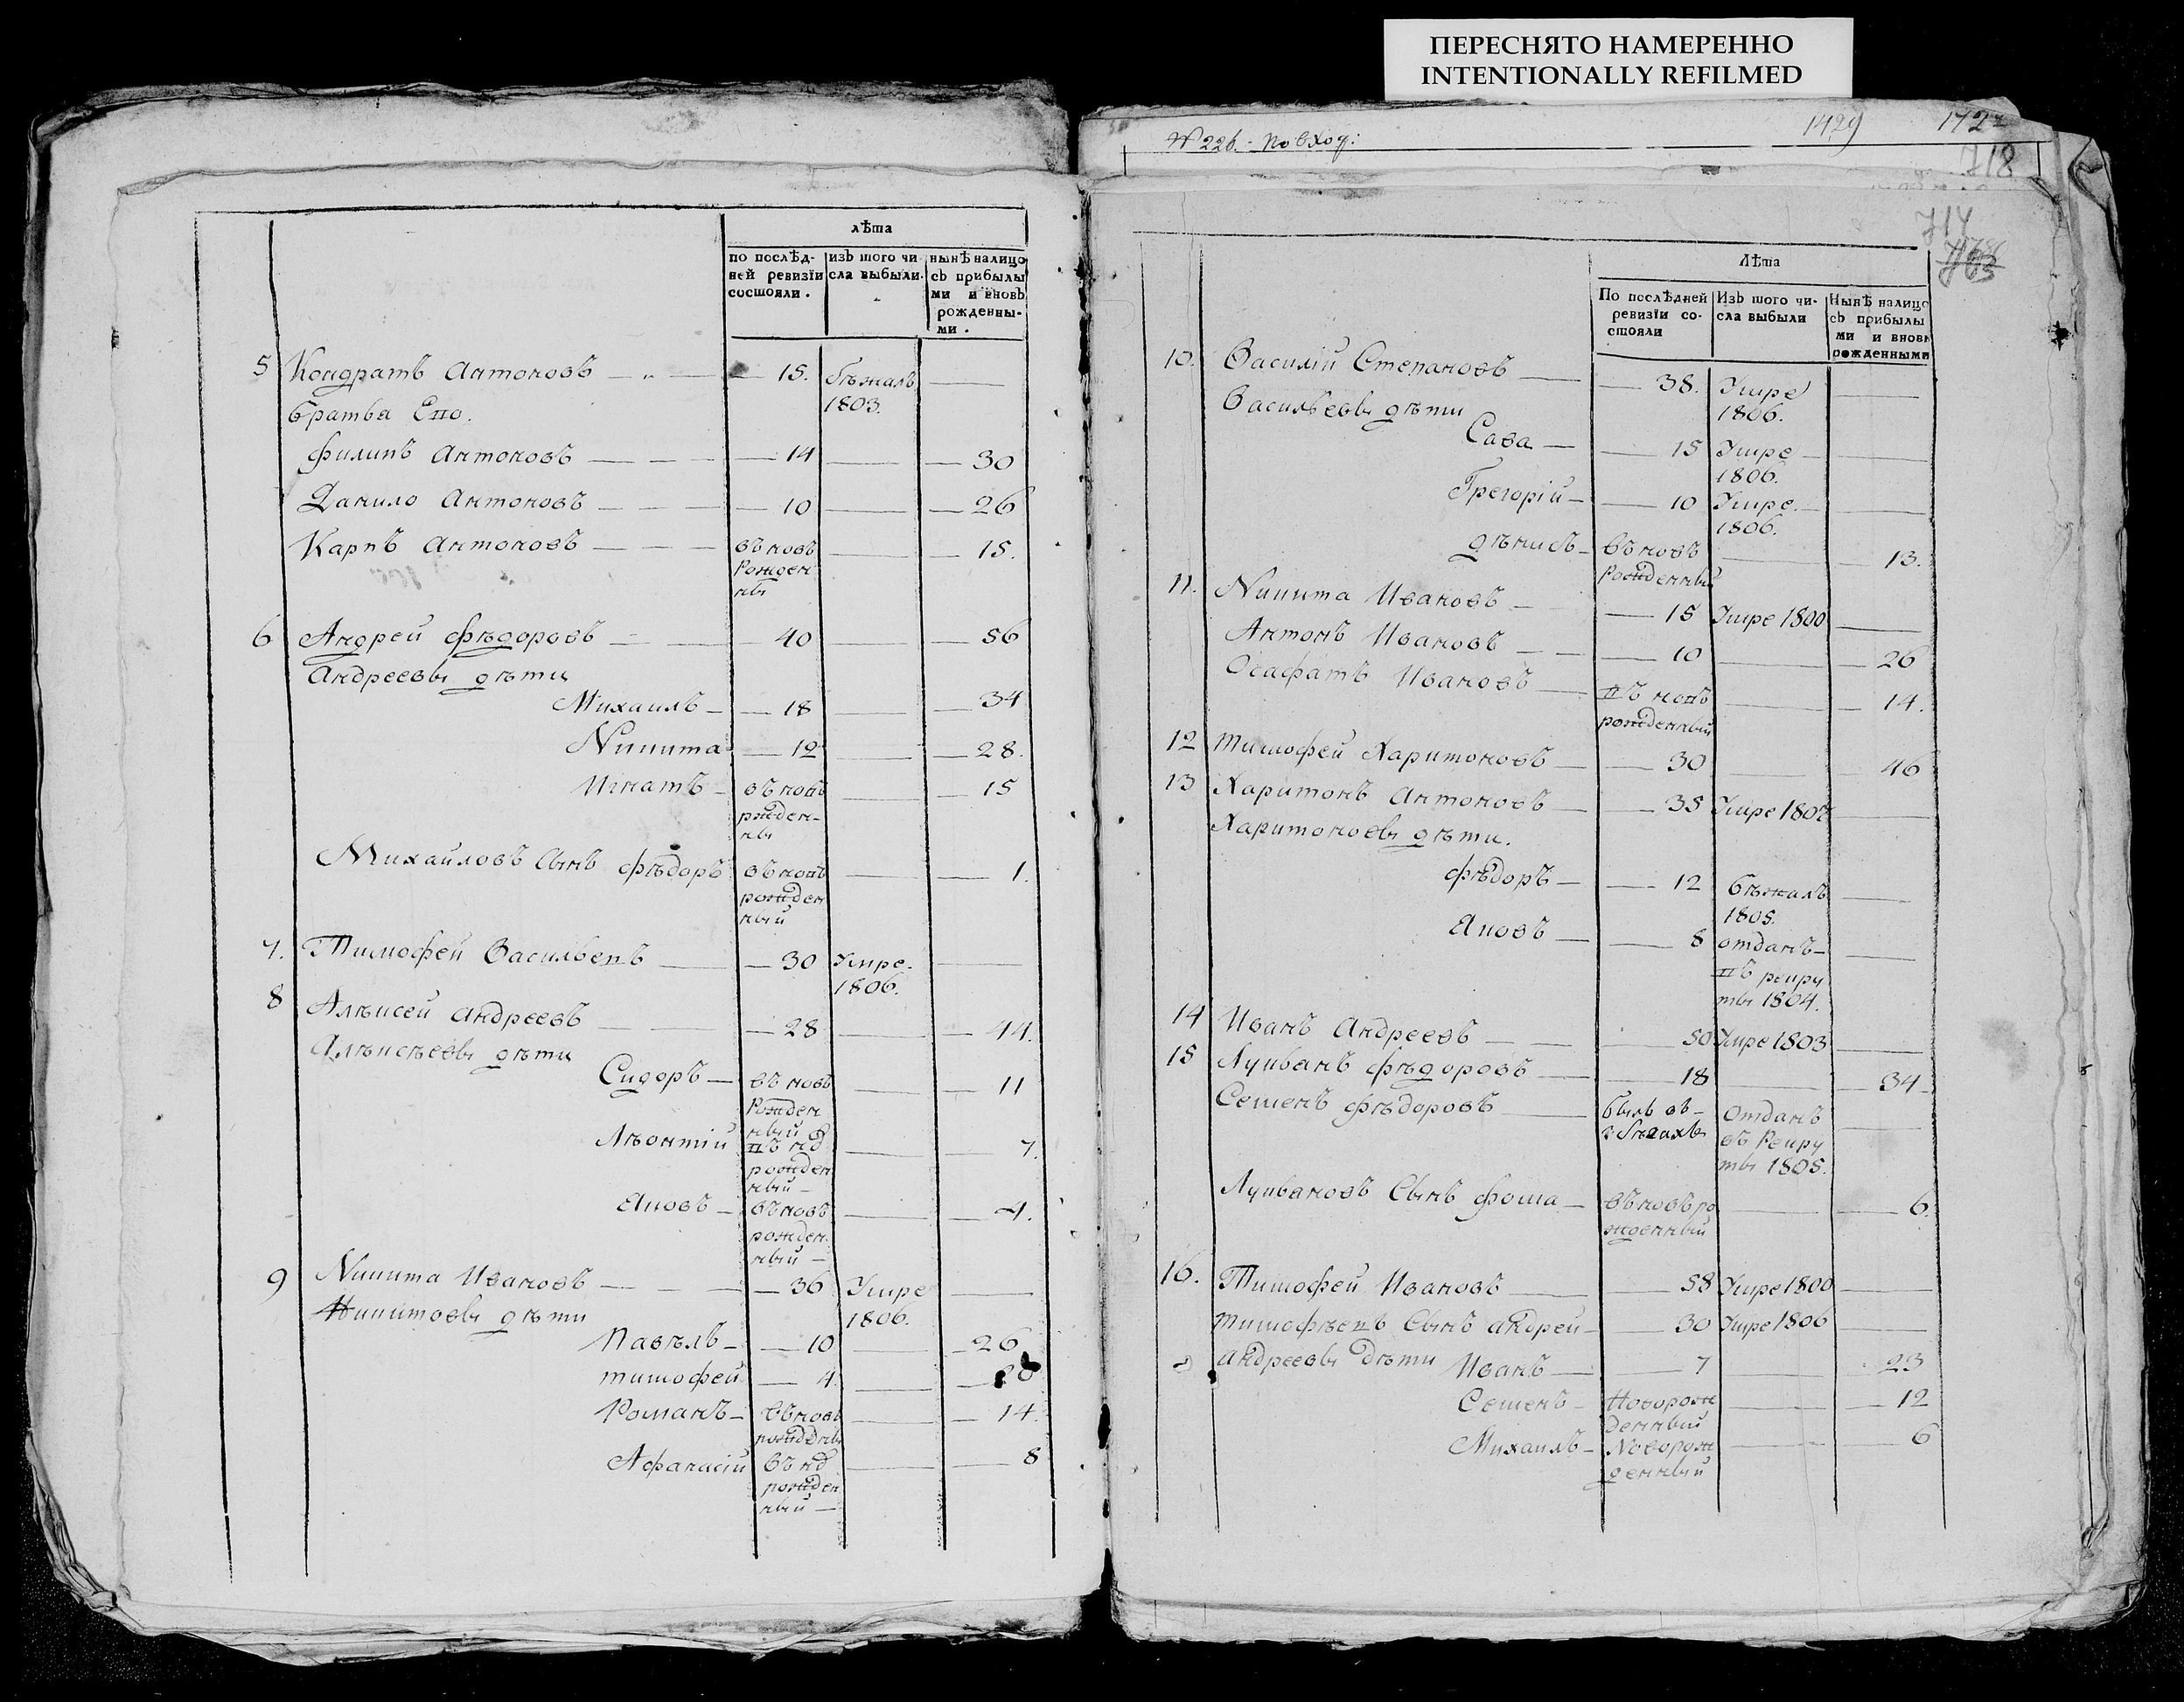 ПЕРЕСНЯТО НАМЕРЕННО
INTENTIONALLY REFILMED
№ 226. - по вход:
1429
1722
718
714
лѣта
по послѣд-
ней ревизїи
состояли.
изъ того чи-
сла выбыли.
нынѣ налицо
съ прибылы
ми и вновь
рожденны-
ми.
5 Кондратъ Антоновъ — 15. бѣжалъ —
1803.
братья Его.
Филипъ Антоновъ — 14 — 30
Данило Антоновъ — 10 — 26
Карпъ Антоновъ — въновь — 15.
Рожден
ны
6 Андрей Фѣдоровъ — 40 — 56
Андреевы дѣти
Михаилъ — 18 — 34
Никита — 12 — 28.
Игнатъ — въновь — 15
рожден-
ны
Михайловъ Сынъ Фѣдоръ въновь — 1.
рожден
ный
7. Тимофей Васильевъ — 30 Умре. —
1806.
8 Алѣксей Андреевъ — 28 — 44.
Алѣксѣевы дѣти
Сидоръ — въновь — 11
Рожден
ный
Лѣонтій въ нд — 7.
рожден
ный —
Яковъ — въновь — 4.
рожден.
ный —
9 Никита Ивановъ — 36 Умре —
1806.
Никитовы дѣти
Павѣлъ — 10 — 26
тимофей — 4. — 20
Романъ — вьновь — 14.
рождены
Афанасій въ нд — 8
рожден
ный —
Лѣта
По послѣдней
ревизїи со-
стояли
Изъ того чи-
сла выбыли
Нынѣ налицо
съ прибылы
ми и вновь
рожденными
10. Василій Степановъ — 38. Умре —
1806.
Васильевы дѣти
Сава — 15 Умре —
1806.
Грегорій — 10 Умре. —
1806.
дѣнисъ — въновь — 13.
Рожденный
11. Никита Ивановъ — 15 Умре 1800 —
Антонъ Ивановъ — 10 — 26
Осафатъ Ивановъ — въ новь — 14.
рожденный
12 Тимофей Харитоновъ — 30 — 46
13 Харитонъ Антоновъ — 35 Умре 1807 —
Харитоновы дѣти.
фѣдоръ — 12 бѣжалъ —
1805.
Яковъ — 8 отданъ —
въ рекру
ты 1804.
14 Иванъ Андреевъ — 50 Умре 1803 —
15 Лукьянъ Фѣдоровъ — 18 — 34
Семенъ Фѣдоровъ — былъ въ — Отданъ —
въ Рекру
ты 1805.
Лукьяновъ Сынъ фома — въновь ро — 6.
жденный
16. Тимофей Ивановъ — 58 Умре 1800 —
тимофѣевъ Сынъ андрей — 30 Умре 1806 —
андреевы дѣти Иванъ — 7 — 23
Семенъ — Новорож — 12
денный
Михаилъ — Новорож — 6
денный